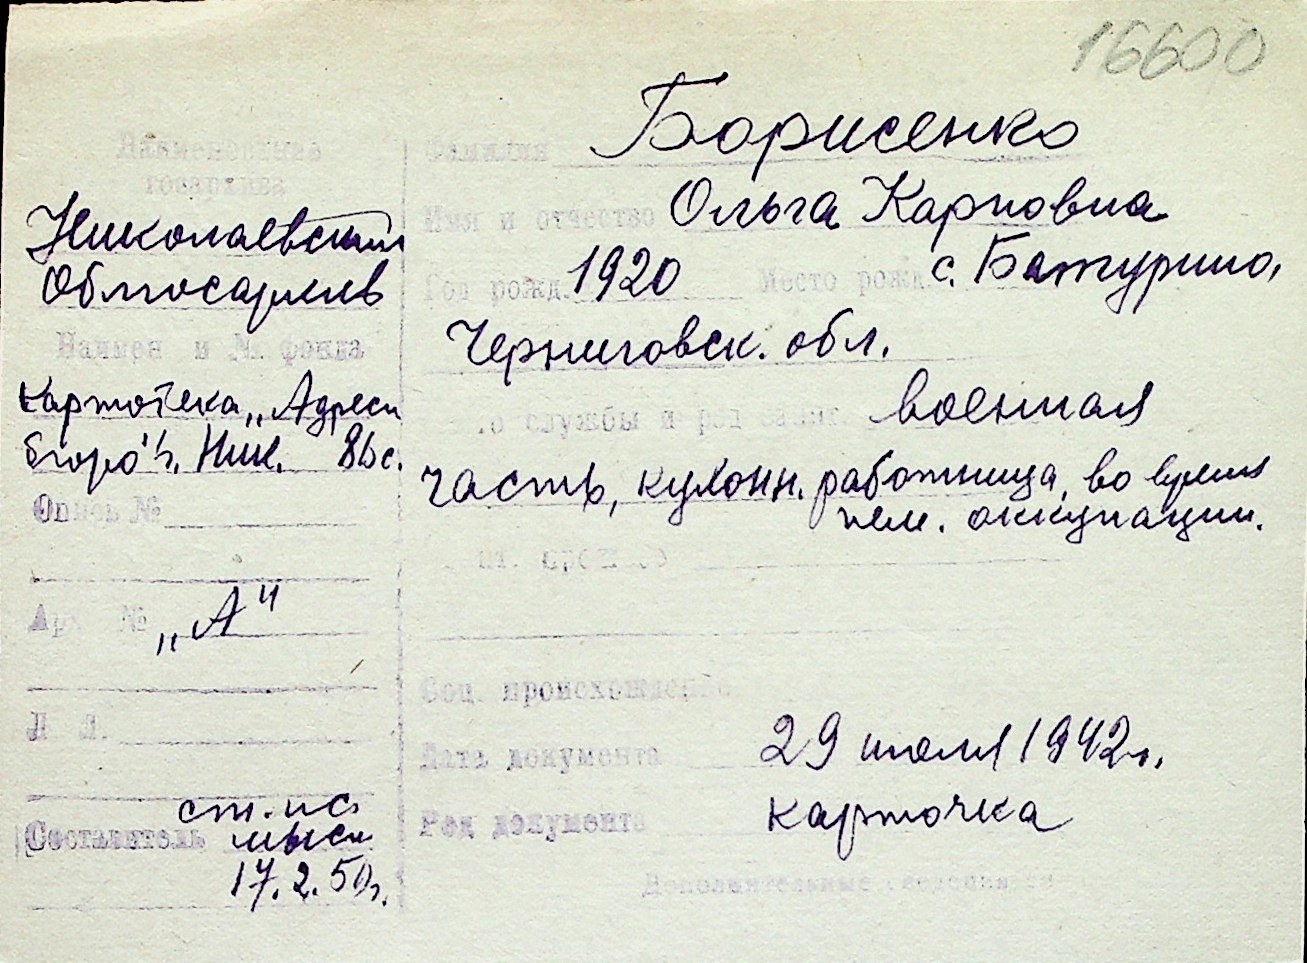 16600
Наименование
госархива
Николаевский
Облгосархив
Наимен и №. фонда
картотека „Адресн
бюро" г. Ник.
Опись №
Арх №
„А"
Л Л.
Составитель ст. н.с.
17.2.50г.
Фамилия Борисенко
Имя и отчество Ольга Карповна
Год рожд. 1920 Место рожд. с. Батурино,
Черниговск. обл.
службы и род военная
часть, кухонн. работница, во время
нем. оккупации.
Соц. происхождение
Дата документа 29 июля 1942г.
Род документа карточка
Дополнительные сведения